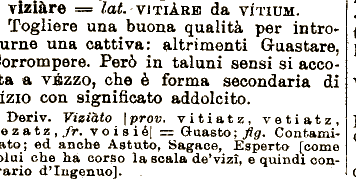 viziàre = lat. VITIÀRE da VÍTIUM.
Togliere una buona qualità per intro-
urne una cattiva: altrimenti Guastare,
orrompere. Però in taluni sensi si acco-
ta a VÉZZO, che è forma secondaria di
ÍZIO con significato addolcito.
Deriv. Viziàto [prov. vitiatz, vetiatz,
ezatz, fr. voisié[ = Guasto; fig. Contami-
ato; ed anche Astuto, Sagace, Esperto [come
olui che ha corso la scala de' vizî, e quindi con-
rario d'Ingenuo].